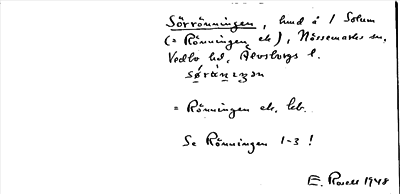 Sörrönningen, hmd å 1 Solum
(= Rönningen ek), Nössemarks sn,
Vedbo hd, Älvsborgs l.
= Rönningen ek. kb.
Se Rönningen 1-3!
E. Rosell 1948